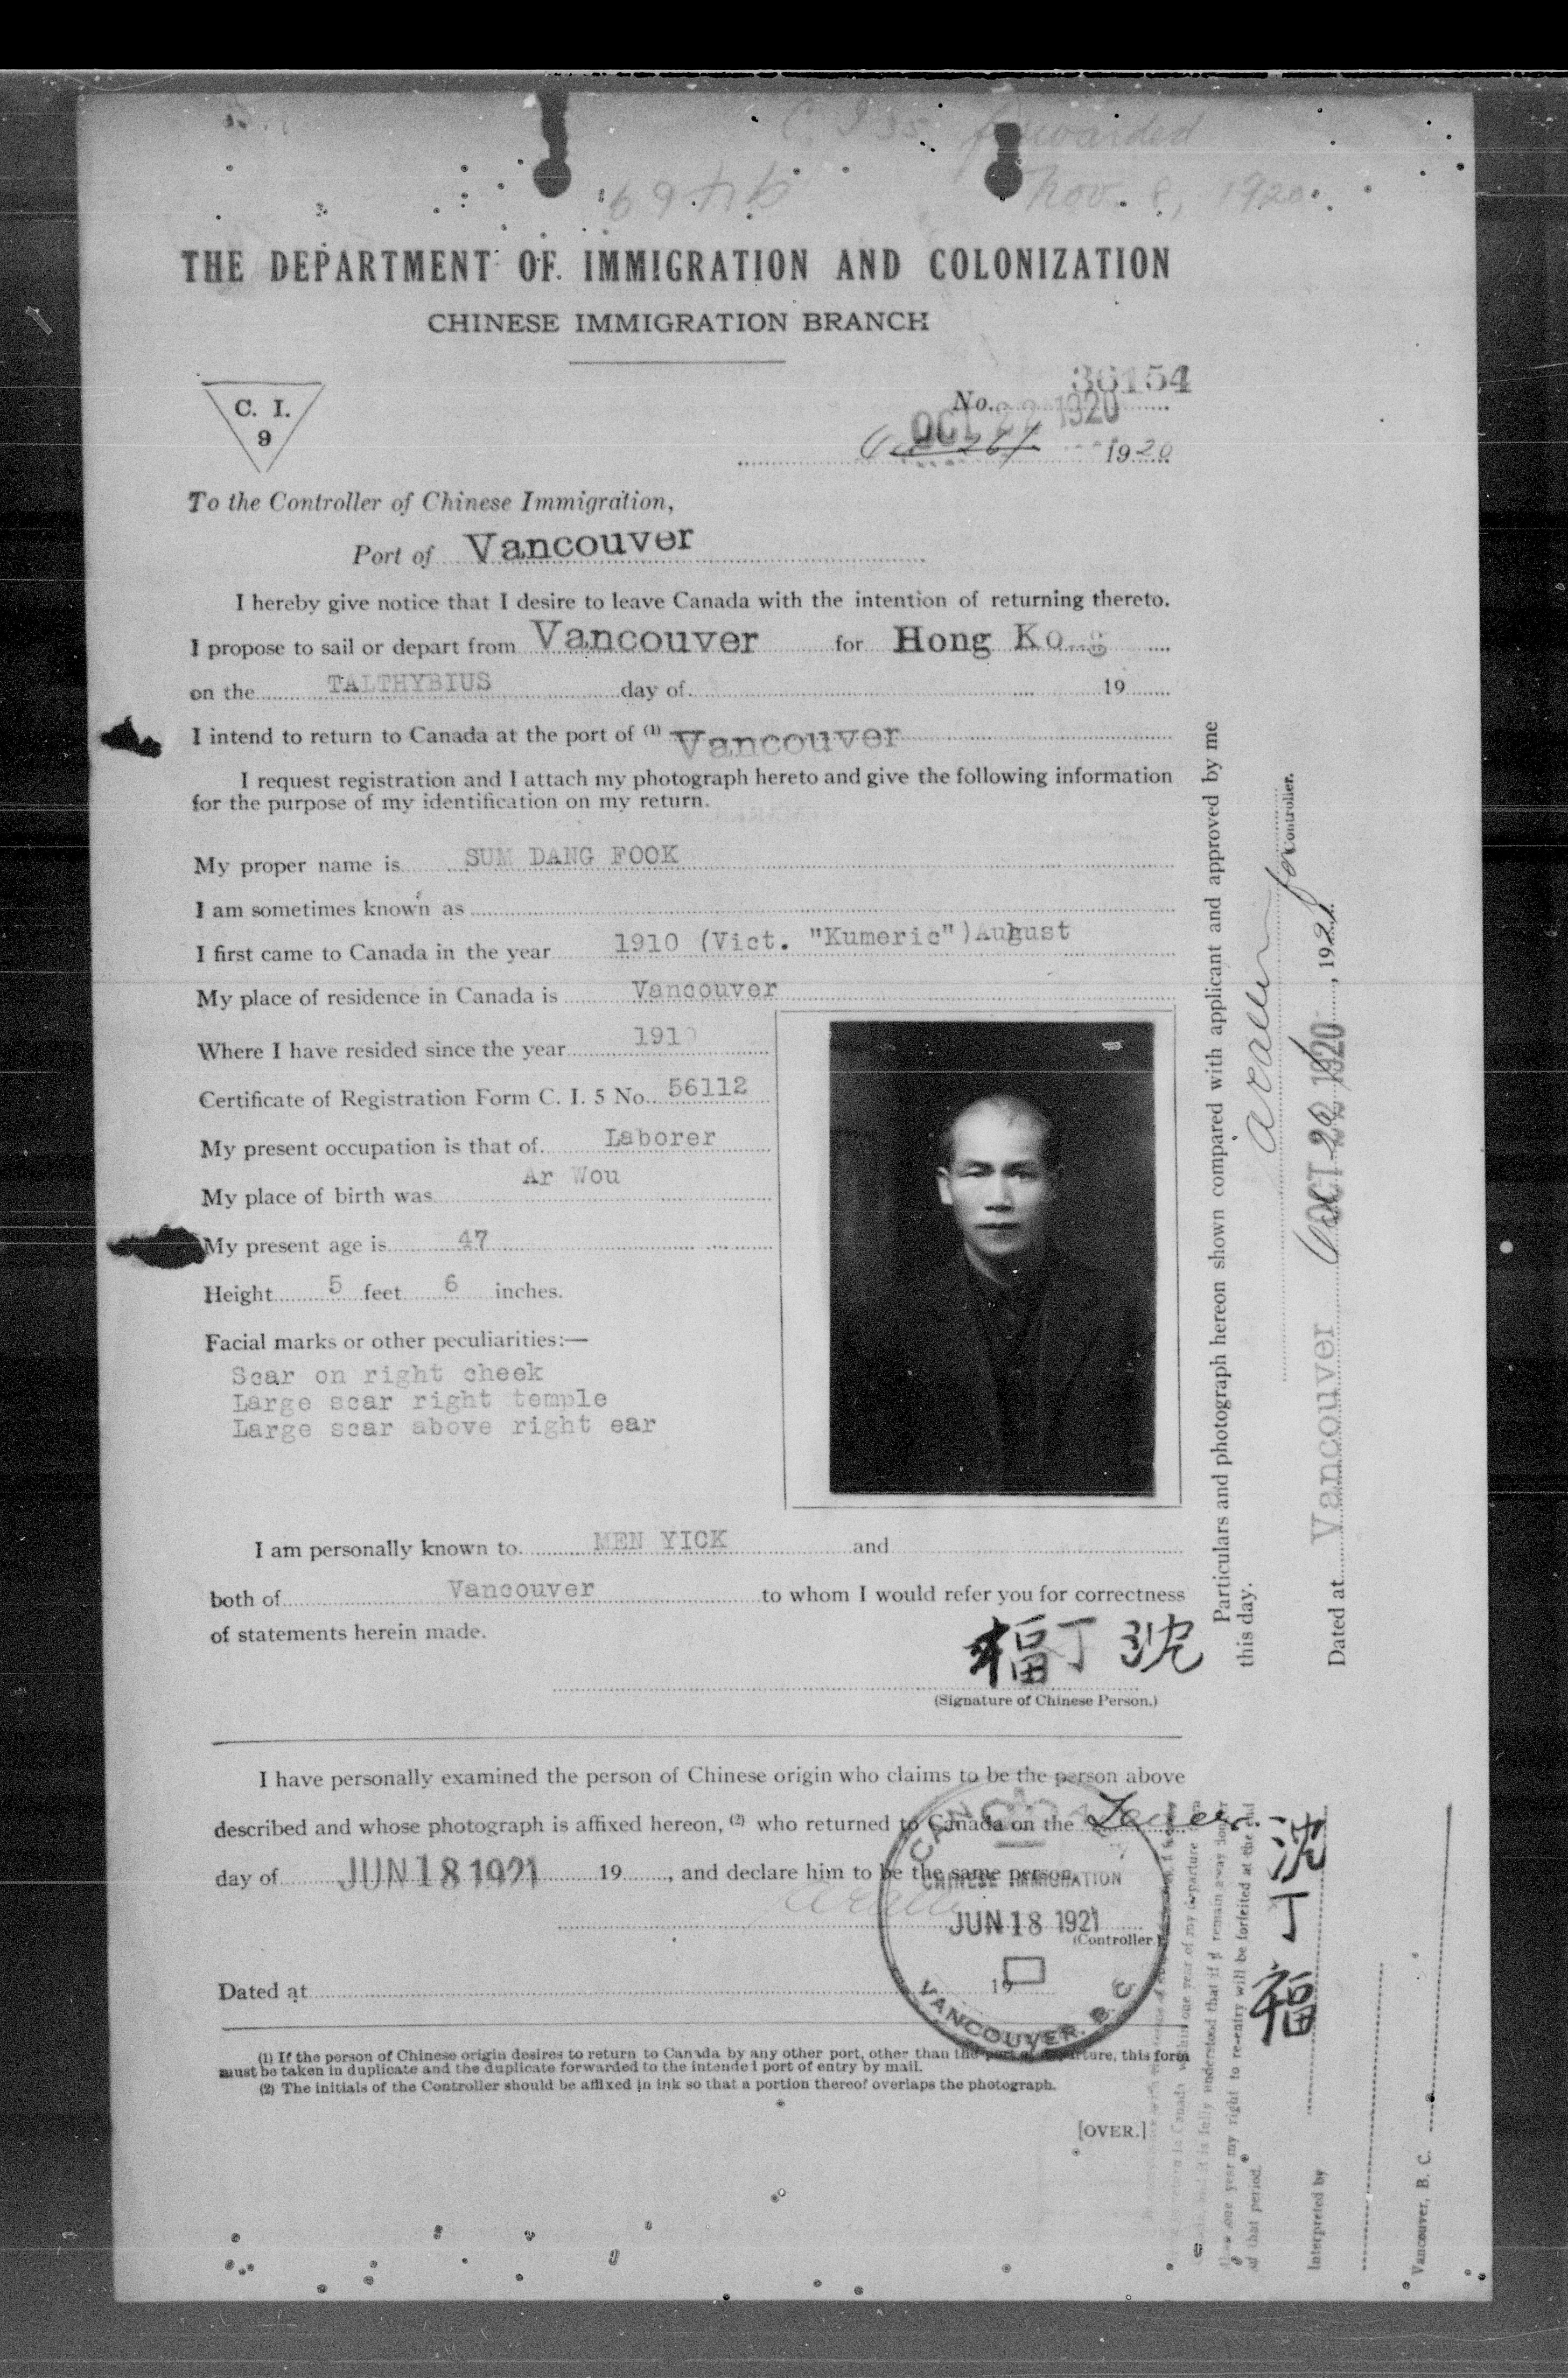 forwarded
Nov. 8, 1920
THE DEPARTMENT OF IMMIGRATION AND COLONIZATION
CHINESE IMMIGRATION BRANCH
C. I.
9
No. 36154
OCT 22 1920
1920
To the Controller of Chinese Immigration,
Port of Vancouver
I hereby give notice that I desire to leave Canada with the intention of returning thereto.
I propose to sail or depart from Vancouver for Hong Kong
on the TALTHYBIUS day of 19
I intend to return to Canada at the port of (1) Vancouver
I request registration and I attach my photograph hereto and give the following information
for the purpose of my identification on my return.
My proper name is SUM DANG FOOK
I am sometimes known as
I first came to Canada in the year 1910 (Vict. "Kumeric") August
My place of residence in Canada is Vancouver
Where I have resided since the year 1910
Certificate of Registration Form C. I. 5 No. 56112
My present occupation is that of Laborer
My place of birth was Ar Wou
My present age is 47
Height 5 feet 6 inches.
Facial marks or other peculiarities:—
Scar on right cheek
Large scar right temple
Large scar above right ear
I am personally known to MEN YICK and
both of Vancouver to whom I would refer you for correctness
of statements herein made.
福丁沈
(Signature of Chinese Person.)
I have personally examined the person of Chinese origin who claims to be the person above
described and whose photograph is affixed hereon, (2) who returned to Canada on the
day of JUN 18 1921 19, and declare him to be the same person.
(Controller.)
Dated at 19
CANADA
CHINESE IMMIGRATION
JUN 18 1921
VANCOUVER. B. C.
(1) If the person of Chinese origin desires to return to Canada by any other port, other than the port of departure, this form
must be taken in duplicate and the duplicate forwarded to the intended port of entry by mail.
(2) The initials of the Controller should be affixed in ink so that a portion thereof overlaps the photograph.
[OVER.]
Particulars and photograph hereon shown compared with applicant and approved by me
this day.
for Controller.
Dated at Vancouver OCT 22 1920, 192
year of my departure
it is fully understood that if I remain away
one year my right to re-entry will be forfeited at the end
of that period.
沈丁福
Interpreted by
Vancouver, B. C.